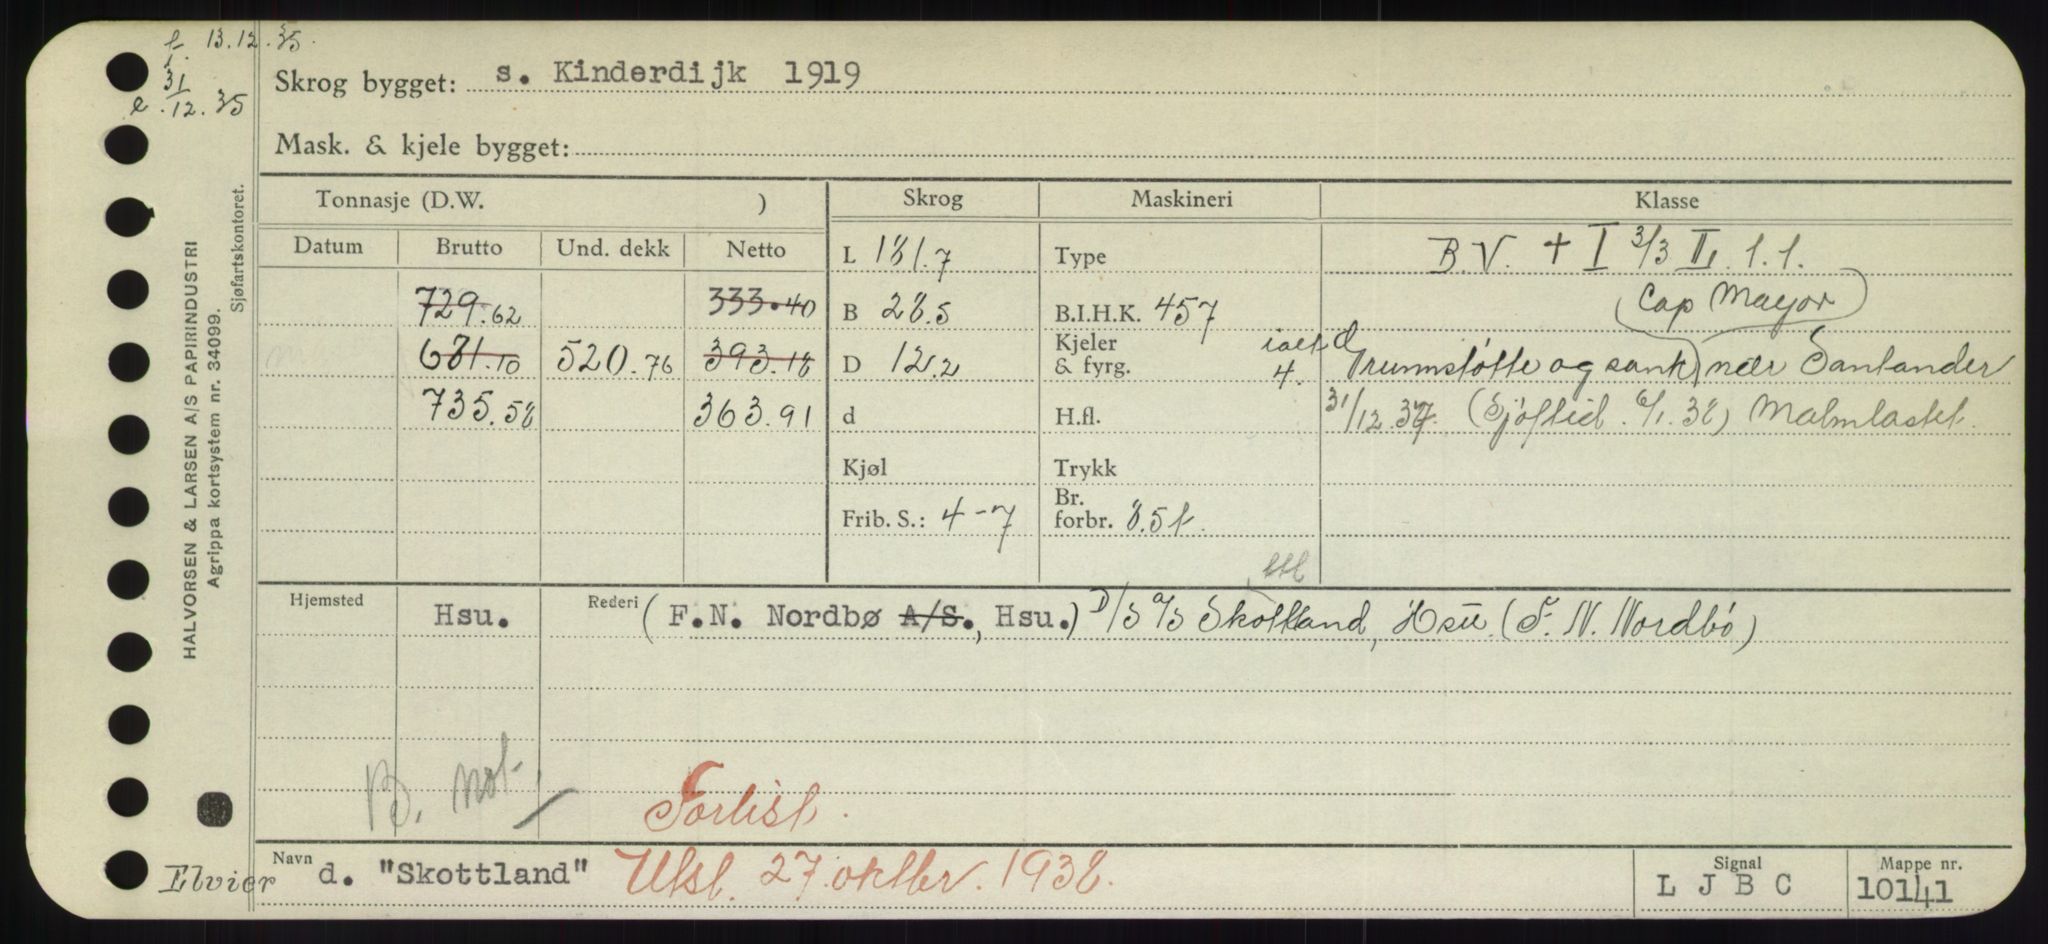 f. 13.12.35.
31
e .12.35
Skrog bygget: s. Kinderdijk 1919
Mask. & kjele bygget:
HALVORSEN & LARSEN A/S PAPIRINDUSTRI
Agrippa kortsystem nr. 34099.
Sjøfartskontoret.
Tonnasje (D.W. ) Skrog Maskineri Klasse
Datum Brutto Und. dekk Netto L 181.7 Type B.V. + I 3/3 II. 1.1.
729.62 333.40 B 28.5 B.I.H.K. 457 Cap Mayor
681.10 520.76 393.18 D 12.2 Kjeler & fyrg. ialt 4. Grunnstøtte og sank nær Santander
735.58 363.91 d H.fl. 31/12.37. (Sjøftid. 6/1.38) Malmlastet.
Kjøl Trykk
Frib. S.: 4-7 Br. forbr. 8.5 t.
Hjemsted Hsu. Rederi (F.N. Nordbø A/S., Hsu.) D/S A/S Skottland, Hsu. (F. N. Nordbø)
B. not.
Forlist.
Elvier
Navn d. "Skottland" Utsl. 27. oktbr. 1938.
Signal L J B C
Mappe nr. 10141